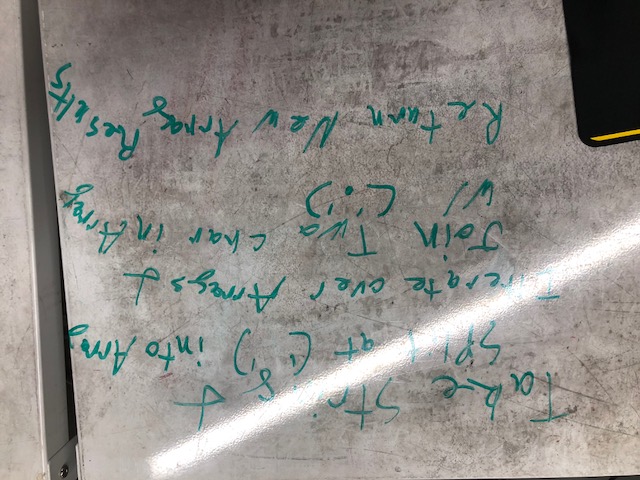 Take String &
Split at (' ') into Array
Iterate over Arrays &
Join Two char in Array
w/ (':')
Return New Array Results